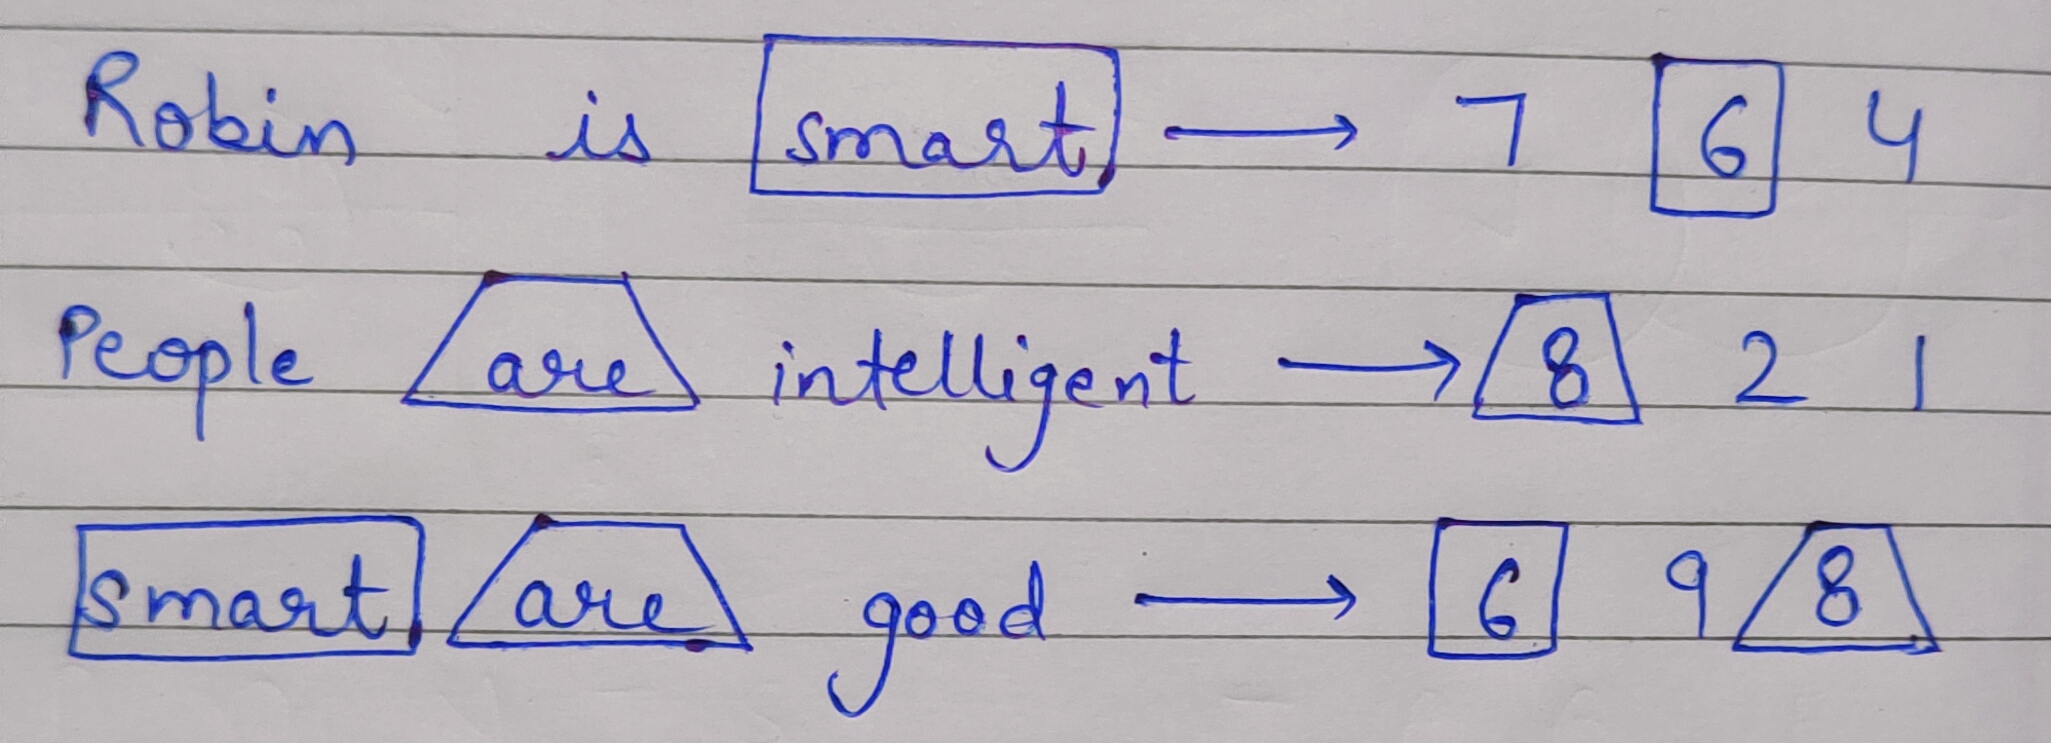 Robin is smart → 7 6 4
People are intelligent → 8 2 1
smart are good → 6 9 8